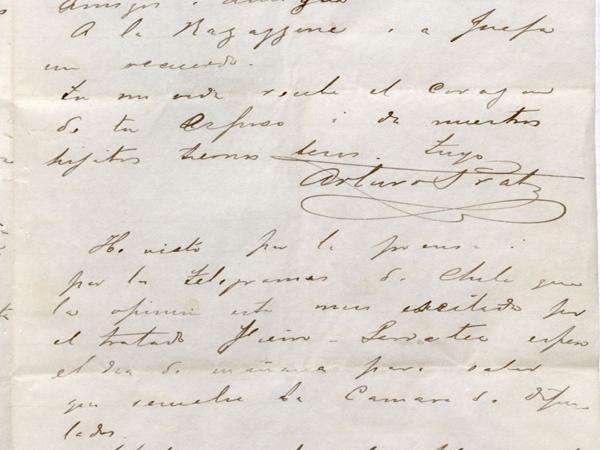 A la Ragazzone i a Juefa
un recuerdo.
Tu mi vida recibe el corazon
de tu Esposo i da nuestros
hijitos tiernos besos. Tuyo
Arturo Prat
He visto por la prensa i
por los telegramas de Chile que
la opinion esta mui excitada por
el tratado Fierro-Sarratea espero
el dia de mañana para saber
que resuelve la Camara de Dipu
tados.